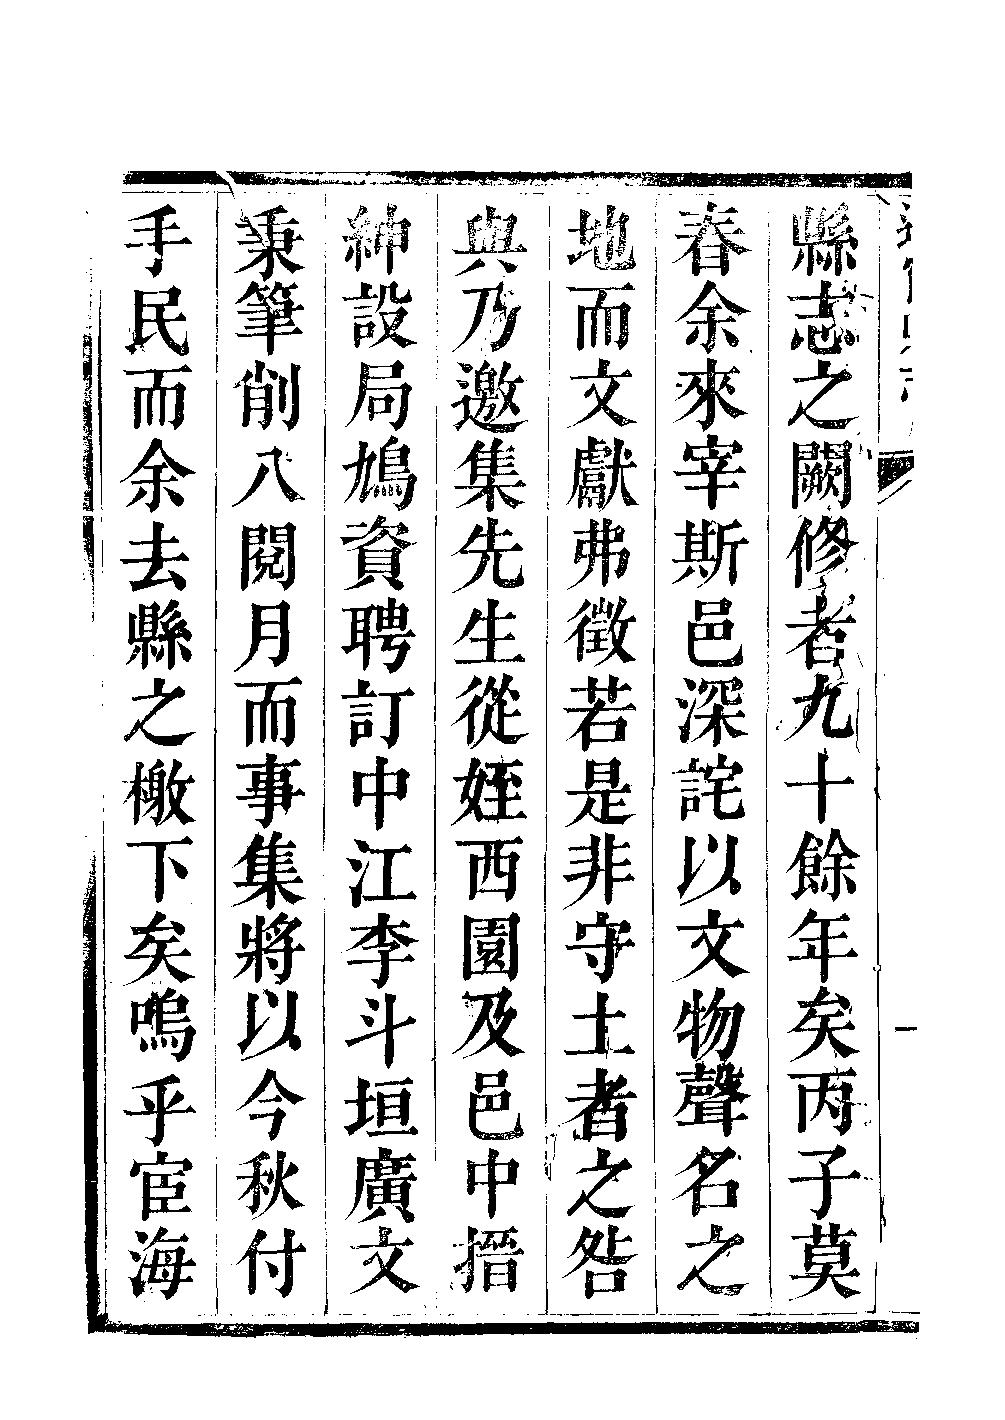 縣志之闕修者九十餘年矣丙子莫
春余來宰斯邑深詫以文物聲名之
地而文獻弗徵若是非守土者之咎
與乃邀集先生從姪西園及邑中搢
紳設局鳩資聘訂中江李斗垣廣文
秉筆削八閱月而事集將以今秋付
手民而余去縣之檄下矣嗚乎宦海